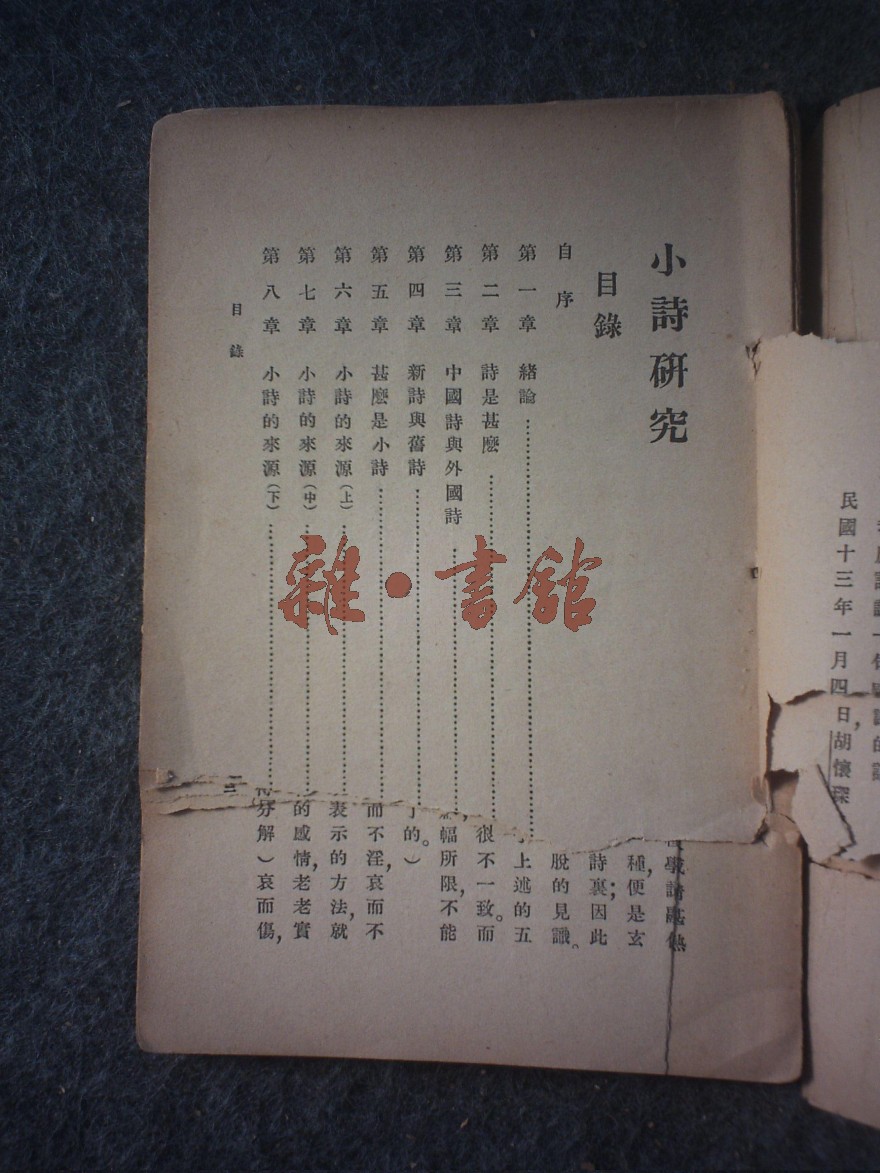 民國十三年一月四日，胡懷琛
小詩研究
目錄
自序
第一章 緒論
第二章 詩是甚麽
第三章 中國詩與外國詩
第四章 新詩與舊詩
第五章 甚麽是小詩
第六章 小詩的來源(上)
第七章 小詩的來源(中)
第八章 小詩的來源(下)
目錄
種，便是玄
詩裏；因此
脫的見識。
上述的五
很不一致。而
幅所限，不能
的。）
而不淫，哀而不
表示的方法，就
的感情，老老實
分解）哀而傷，
雜·書館